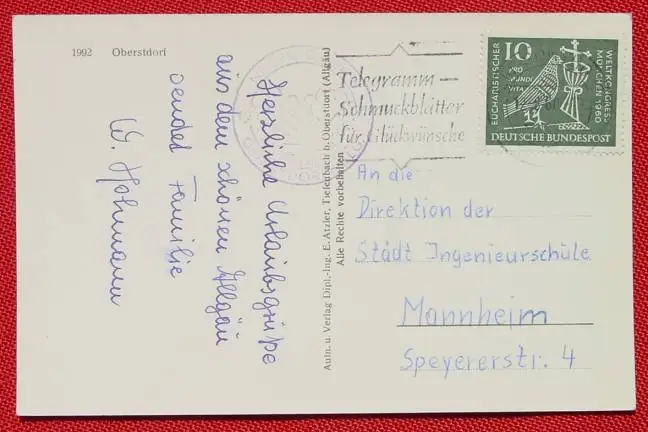 1992 Oberstdorf
Herzliche Urlaubsgrüße
aus dem schönen Allgäu
sendet Familie
W. Hohmann
Aufn. u. Verlag Dipl.-Ing. E. Atzler, Tiefenbach b. Oberstdorf (Allgäu)
Alle Rechte vorbehalten
Telegramm –
Schmuckblätter
für Glückwünsche
10
EUCHARISTISCHER
WELTKONGRESS
MÜNCHEN 1960
PRO
MUNDI
VITA
DEUTSCHE BUNDESPOST
An die
Direktion der
Städt Ingenieurschule
Mannheim
Speyererstr. 4